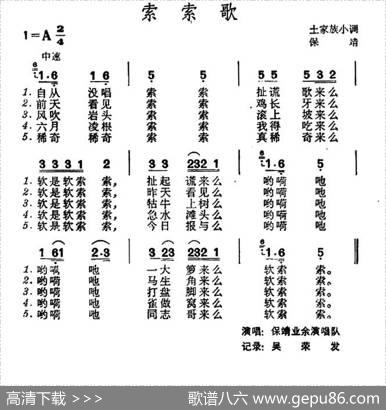 索索歌
1=A 2/4
土家族小调
保靖
中速
6 i·6 1 6 5 5 5 5 5 3 2
1. 自从 没唱 索 索 扯谎 歌来么
2. 前天 看见 索 索 鸡长 牙来么
3. 风吹 岩头 索 索 滚上 坡来么
4. 六月 凌根 索 索 我得 吃来么
5. 稀奇 稀奇 索 索 真稀 奇来么
3 3 3 1 2 3 3 232 1 6 i·6 5
1. 软是软索 索, 扯起 谎来么 哟嗬 吔
2. 软是软索 索, 昨天 看见么 哟嗬 吔
3. 软是软索 索, 牯牛 上树么 哟嗬 吔
4. 软是软索 索, 急水 滩头么 哟嗬 吔
5. 软是软索 索, 今日 报与么 哟嗬 吔
1 61 2·3 3 3 232 1 6 i·6 5
1. 哟嗬 吔 一大 箩来么 软索 索。
2. 哟嗬 吔 马生 角来么 软索 索。
3. 哟嗬 吔 打盘 脚来么 软索 索。
4. 哟嗬 吔 雀做 窝来么 软索 索。
5. 哟嗬 吔 同志 哥来么 软索 索。
演唱:保靖业余演唱队
记录:吴荣发
高清下载 >>> 歌谱八六 www.gepu86.com